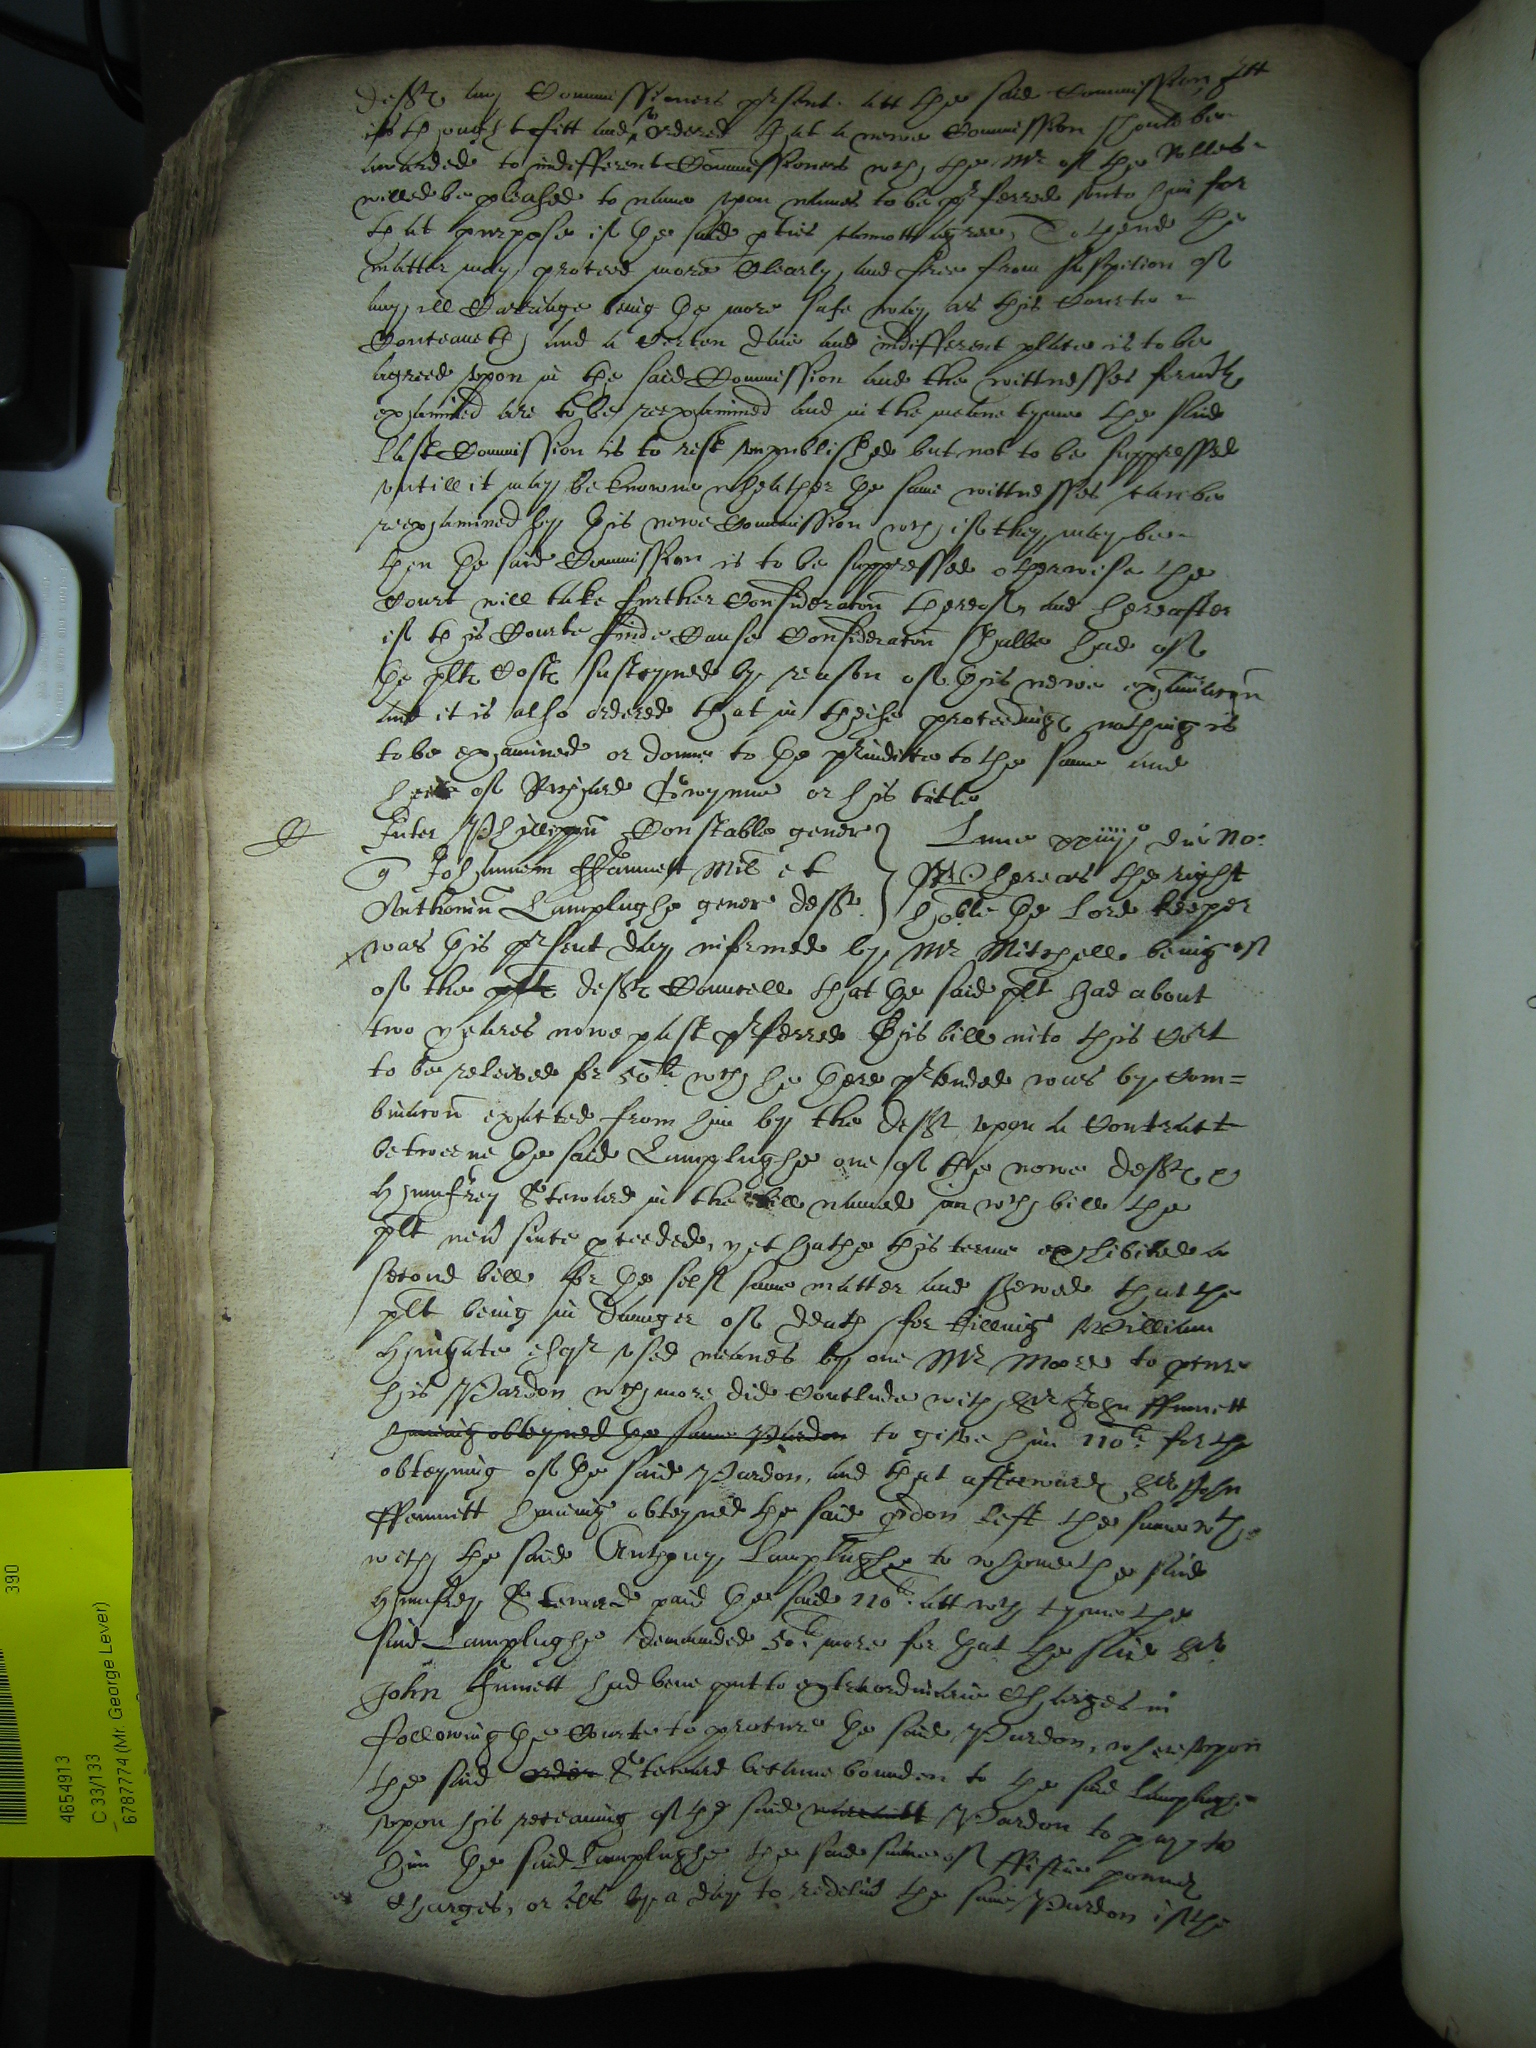 deftes any Commissioners present att the said Commission Itt
is thought fitt and so ordered that a newe Commission should be
awarded to indifferent Commissioners wch the Mr of the Rolles
wilbe pleased to name upon names to be prferred unto him for
that purpose if the said pties cannott agree, To thend the
matter may proceed more Clearly and free from suspition of
any ill Carriage being the more safe way as this Courte
Conceaueth, and a Certen daie and indifferent place is to be
agreed upon in the said Commission and the wittnesses
examined are to be reexamined and in the meane tyme the said
last Commission is to rest unpublished but not to be suppressed
untill it may be knowne wheather the same wittnesses can be
reexamined by this newe Commission wch if they may be
then the said Commission is to be suppressed otherwise the
Court will take further Consideracon thereof, and hereafter
if this Courte finde Cause Consideracon shalbe had of
the plts Costs susteyned by reason of this newe examinacon
and it is also ordered that in theise proceedings nothing is
to be examined or donne to the priudice to the same and
heire of Richard Gwynne or his title
Inter Phillippu Constable gener Lune xxiiijo die No:
q Johannem ffamett Mil et Whereas the right
Anthoniu Lamplughe gener deft hoble the Lord keeper
was this present day informed by Mr Mitchell being of
of the plts defts Councell that the said plt had about
two yeares nowe past prferred this bill into this Cort
to be releived for 50li wch he there prtended was by Com=
binacon exacted from him by the defts upon a Contract
betweene the said Lamplughe one of the nowe defts &
Humfrey Steward in the bill named in wch bill the
plt neu since pceeded, yet hathe this terme exhibited a
second bill for the self same matter and shewed that the
plt being in daunger of death for killing William
esqr used meanes by one Mr Moore to pcure
his Pardon wch more did Conclude with Sr John ffamett
having obteyned the same Pardon to give him 110li for the
obteyning of the said Pardon, and that afterwards Sr John
ffamett having obteyned the said pdon left the same wth
with the said Anthony Lamplughe to whome the said
Humfrey Steward paid the said 110li att wch tyme the
said Lamplughe demanded 50li more for that the said Sr
John ffamett had bene put to extraordinarie Charges in
following the Courte to procure the said Pardon, whereupon
the said order Steward became bounden to the said Lamplughe
upon his receaving of the said warrant Pardon to pay to
him the said Lamplughe the said summe of ffiftie pounds
Charges, or els by a day to redeliu the same Pardon if the
390
4654913
C 33/133
6787774 (Mr. George Lever)